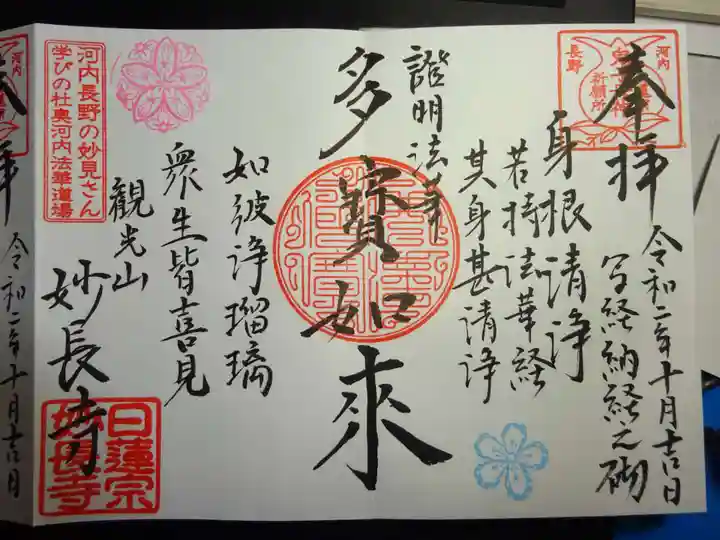 奉拝
令和二年十月吉日
写経納経之砌
身根清浄
若持法華経
其身甚清浄
證明法華
多寳如來
如彼浄瑠璃
衆生皆喜見
観光山
妙長寺
河内
長野
祈願所
河内長野の妙見さん
学びの杜奥河内法華道場
日蓮宗
妙長寺
河内
拝
令和二年十月吉日